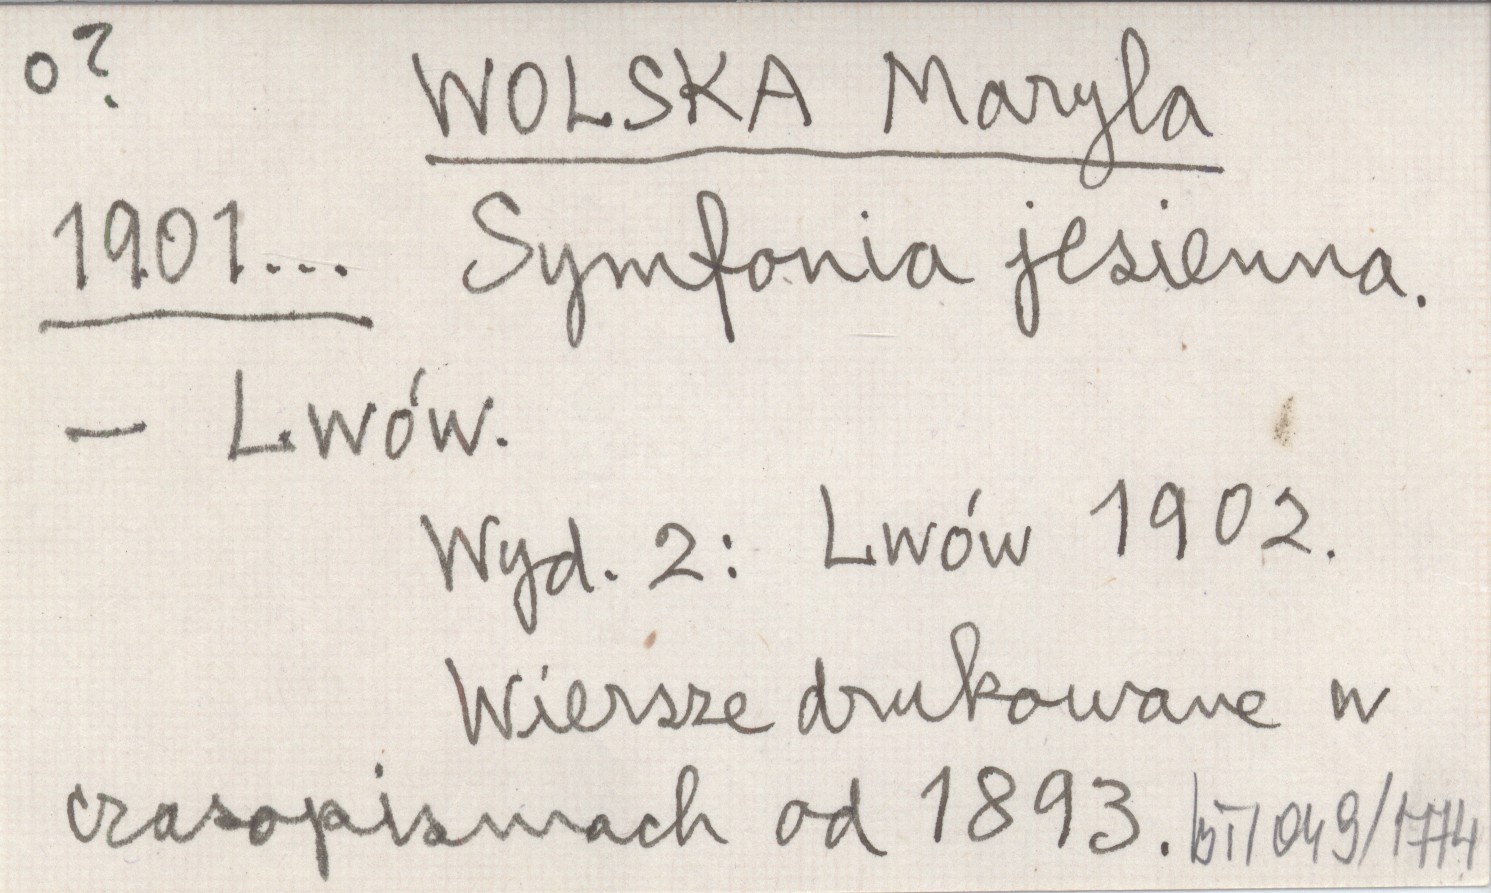 o?
WOLSKA Maryla
1901... Symfonia jesienna.
— Lwów.
Wyd. 2: Lwów 1902.
Wiersze drukowane w
czasopismach od 1893.
049/1774